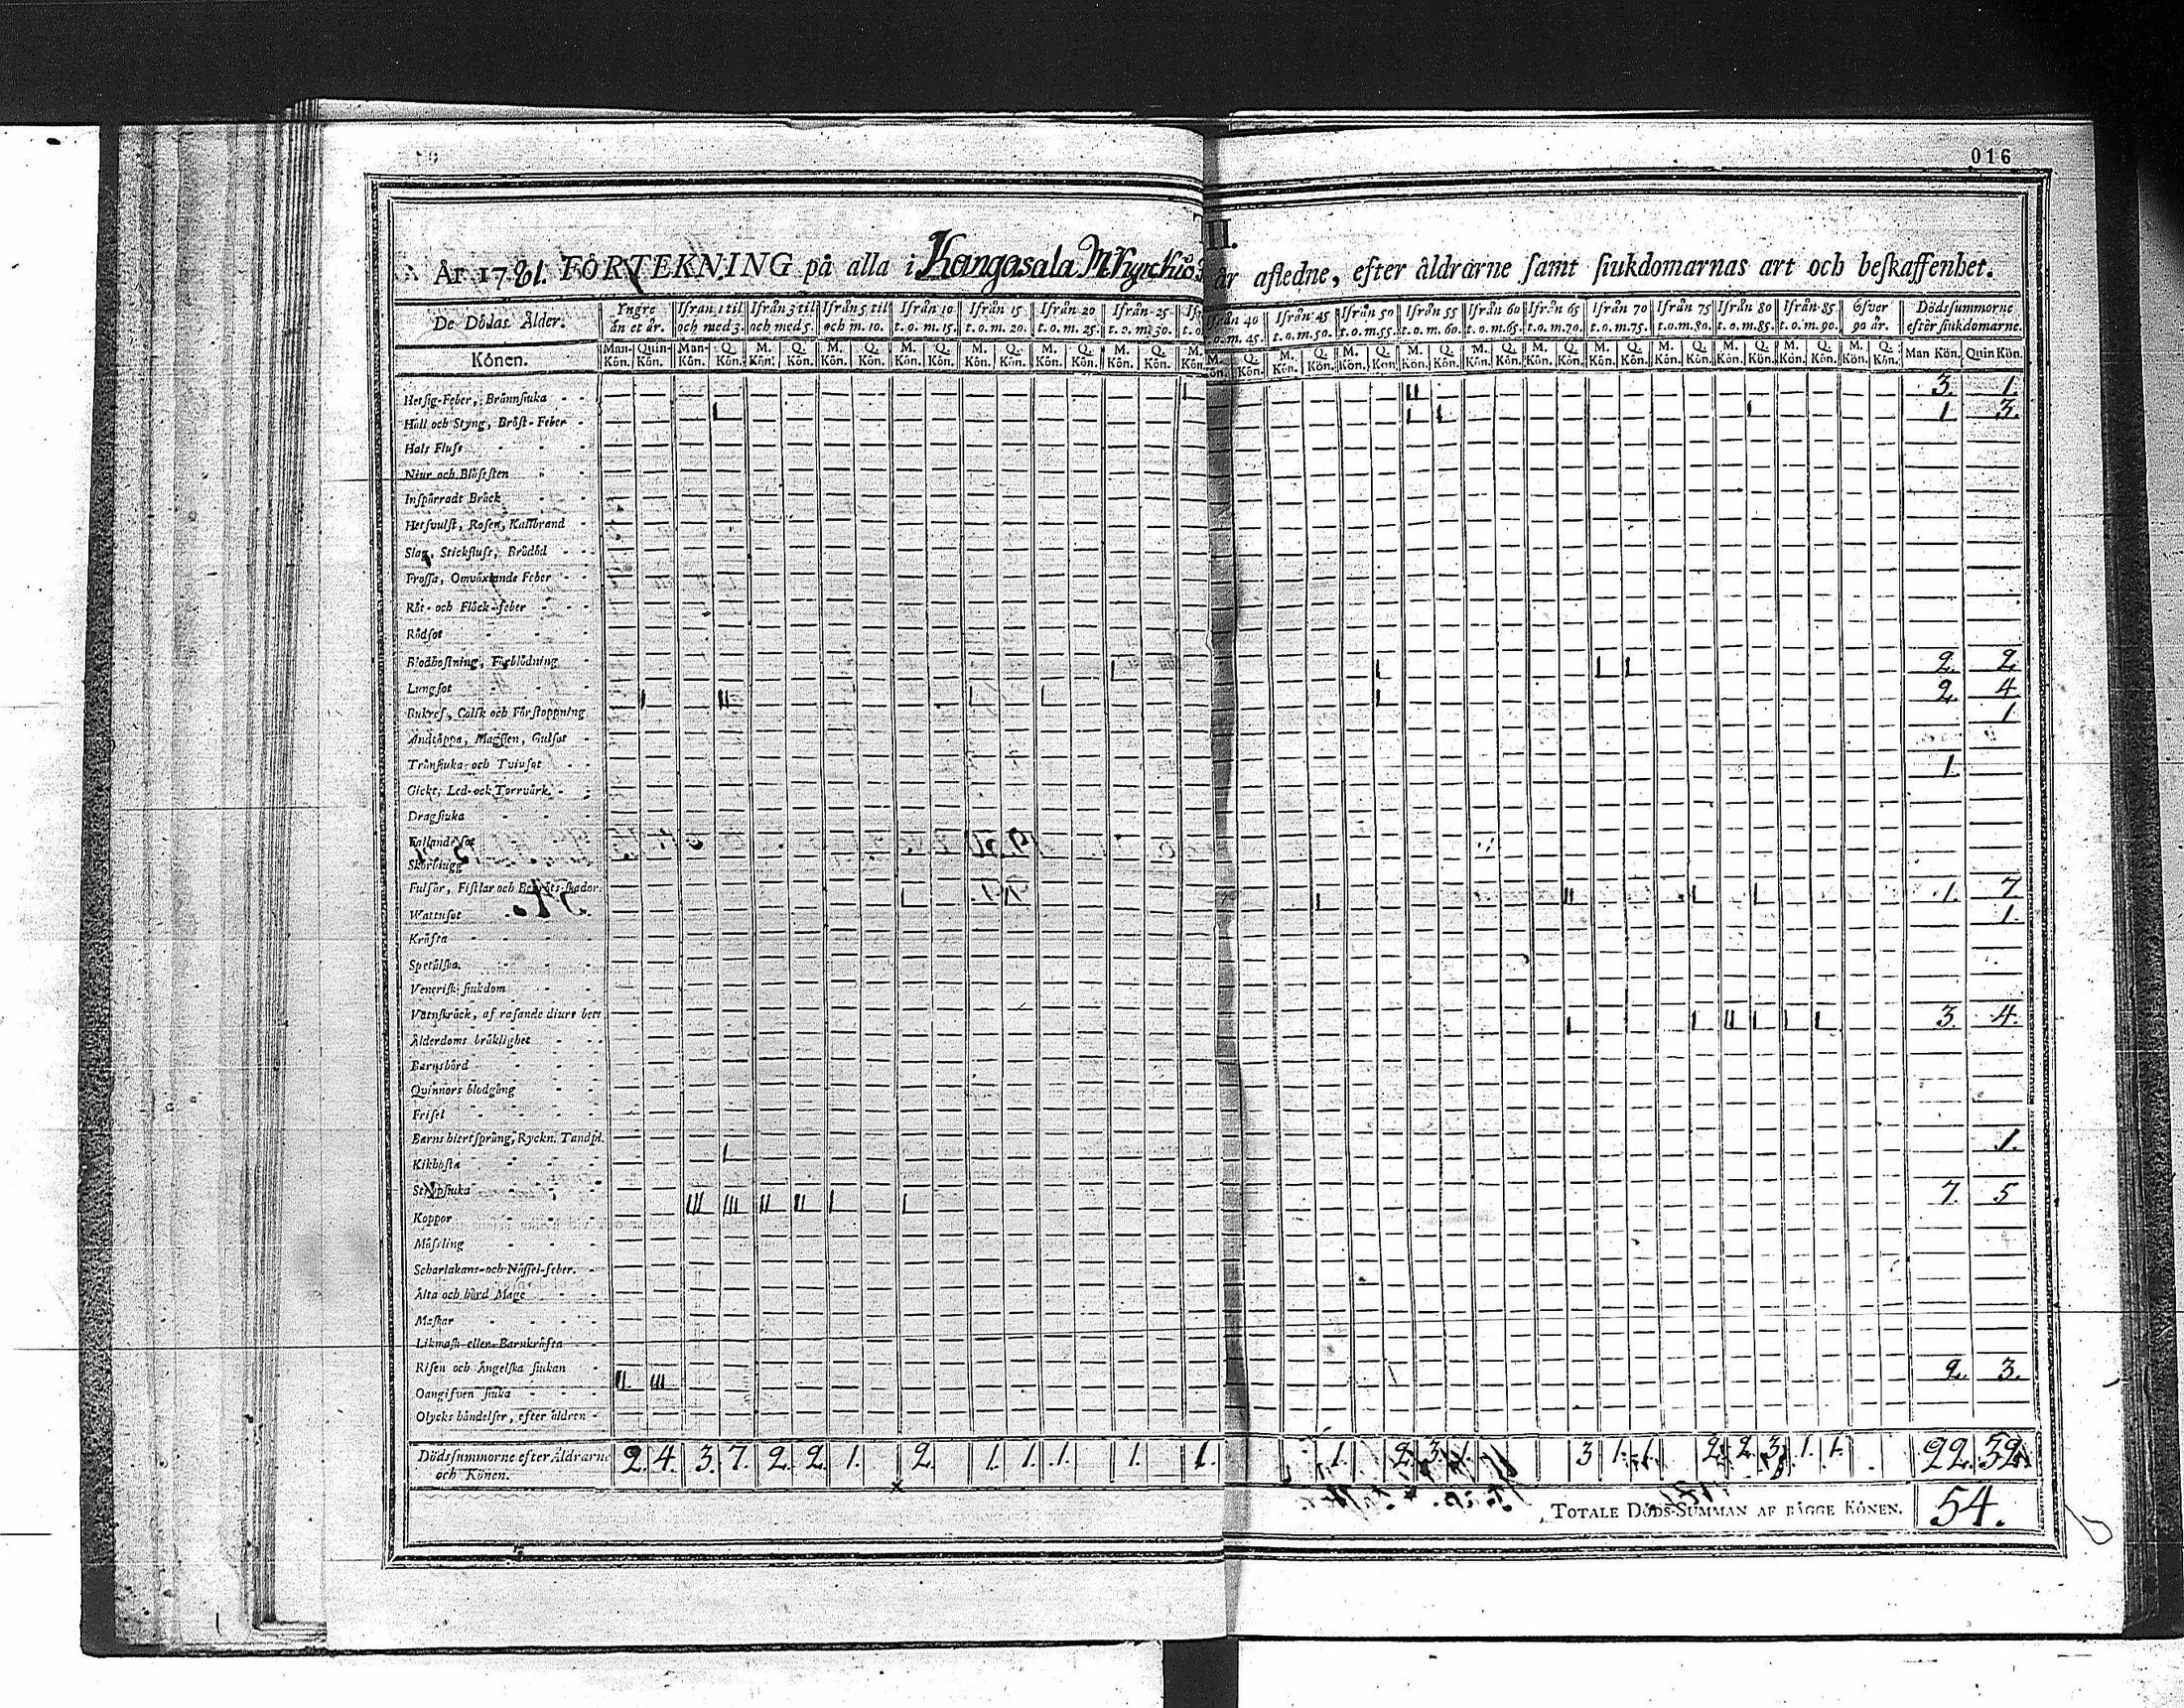 016
II.
År 1781. FÖRTEKNING på alla i Kangasala M Kyrckio år afledne, efter åldrarne samt siukdomarnas art och beskaffenhet.
De Dödas Ålder. Yngre än et år. Ifrån 1 til och med 3. Ifrån 3 til och med 5. Ifrån 5 til och m. 10. Ifrån 10 t. o. m. 15. Ifrån 15 t. o. m. 20. Ifrån 20 t. o. m. 25. Ifrån 25 t. o. m. 30. Ifrån 40 t. o. m. 45. Ifrån 45 t. o. m. 50. Ifrån 50 t. o. m. 55. Ifrån 55 t. o. m. 60. Ifrån 60 t. o. m. 65. Ifrån 65 t. o. m. 70. Ifrån 70 t. o. m. 75. Ifrån 75 t. o. m. 80. Ifrån 80 t. o. m. 85. Ifrån 85 t. o. m. 90. Öfver 90 år. Dödssummorne efter siukdomarne.
Könen. Man-Kön. Quin-Kön. Man-Kön. Q. Kön. M. Kön. Q. Kön. M. Kön. Q. Kön. M. Kön. Q. Kön. M. Kön. Q. Kön. M. Kön. Q. Kön. M. Kön. Q. Kön. M. Kön. Q. Kön. M. Kön. Q. Kön. M. Kön. Q. Kön. M. Kön. Q. Kön. M. Kön. Q. Kön. M. Kön. Q. Kön. M. Kön. Q. Kön. M. Kön. Q. Kön. M. Kön. Q. Kön. M. Kön. Q. Kön. M. Kön. Q. Kön. Man Kön. Quin Kön.
Hetsig-Feber, Brännsiuka 3. 1.
Håll och Styng, Bröst-Feber 1 3.
Hals Fluss
Niur och Blåssten
Inspärradt Bråck
Hetsvulst, Rosen, Kallbrand
Slag, Stickfluss, Brådöd
Frossa, Omväxlande Feber
Röt- och Fläck-feber
Rödsot
Blodhostning, Förblödning 2. 2
Lungsot 2 4
Bukref, Colik och Förstoppning 1
Andtäppa, Magsten, Gulsot
Trånsiuka och Tvinsot 1
Gickt, Led- och Torrvärk
Dragsiuka
Fallandesot
Skörbiugg
Fulsår, Fistlar och Benröts-skador 1. 7
Wattusot 1.
Kräfta
Spetälska
Venerisk siukdom
Vatnskräck, af rasande diurs bett 3. 4.
Ålderdoms bräklighet
Barnsbörd
Quinnors blodgång
Frisel
Barns hiertsprång, Ryckn. Tandsl. 1.
Kikhosta
Strypsiuka 7. 5
Koppor
Mässling
Scharlakans- och Nässel-feber.
Älta och hård Mage
Maskar
Likmask eller Barnkräfta
Risen och Ängelska siukan 2. 3.
Oangifven siuka
Olycks händelser, efter åldren
Dödssummorne efter Åldrarne och Könen. 2. 4. 3. 7. 2. 2. 1. 2. 1. 1. 1. 1. 1. 1. 2. 3. 1. 3 1. 1. 2. 2. 3. 1. 1. 22. 32.
TOTALE DÖDS-SUMMAN AF BÄGGE KÖNEN. 54.